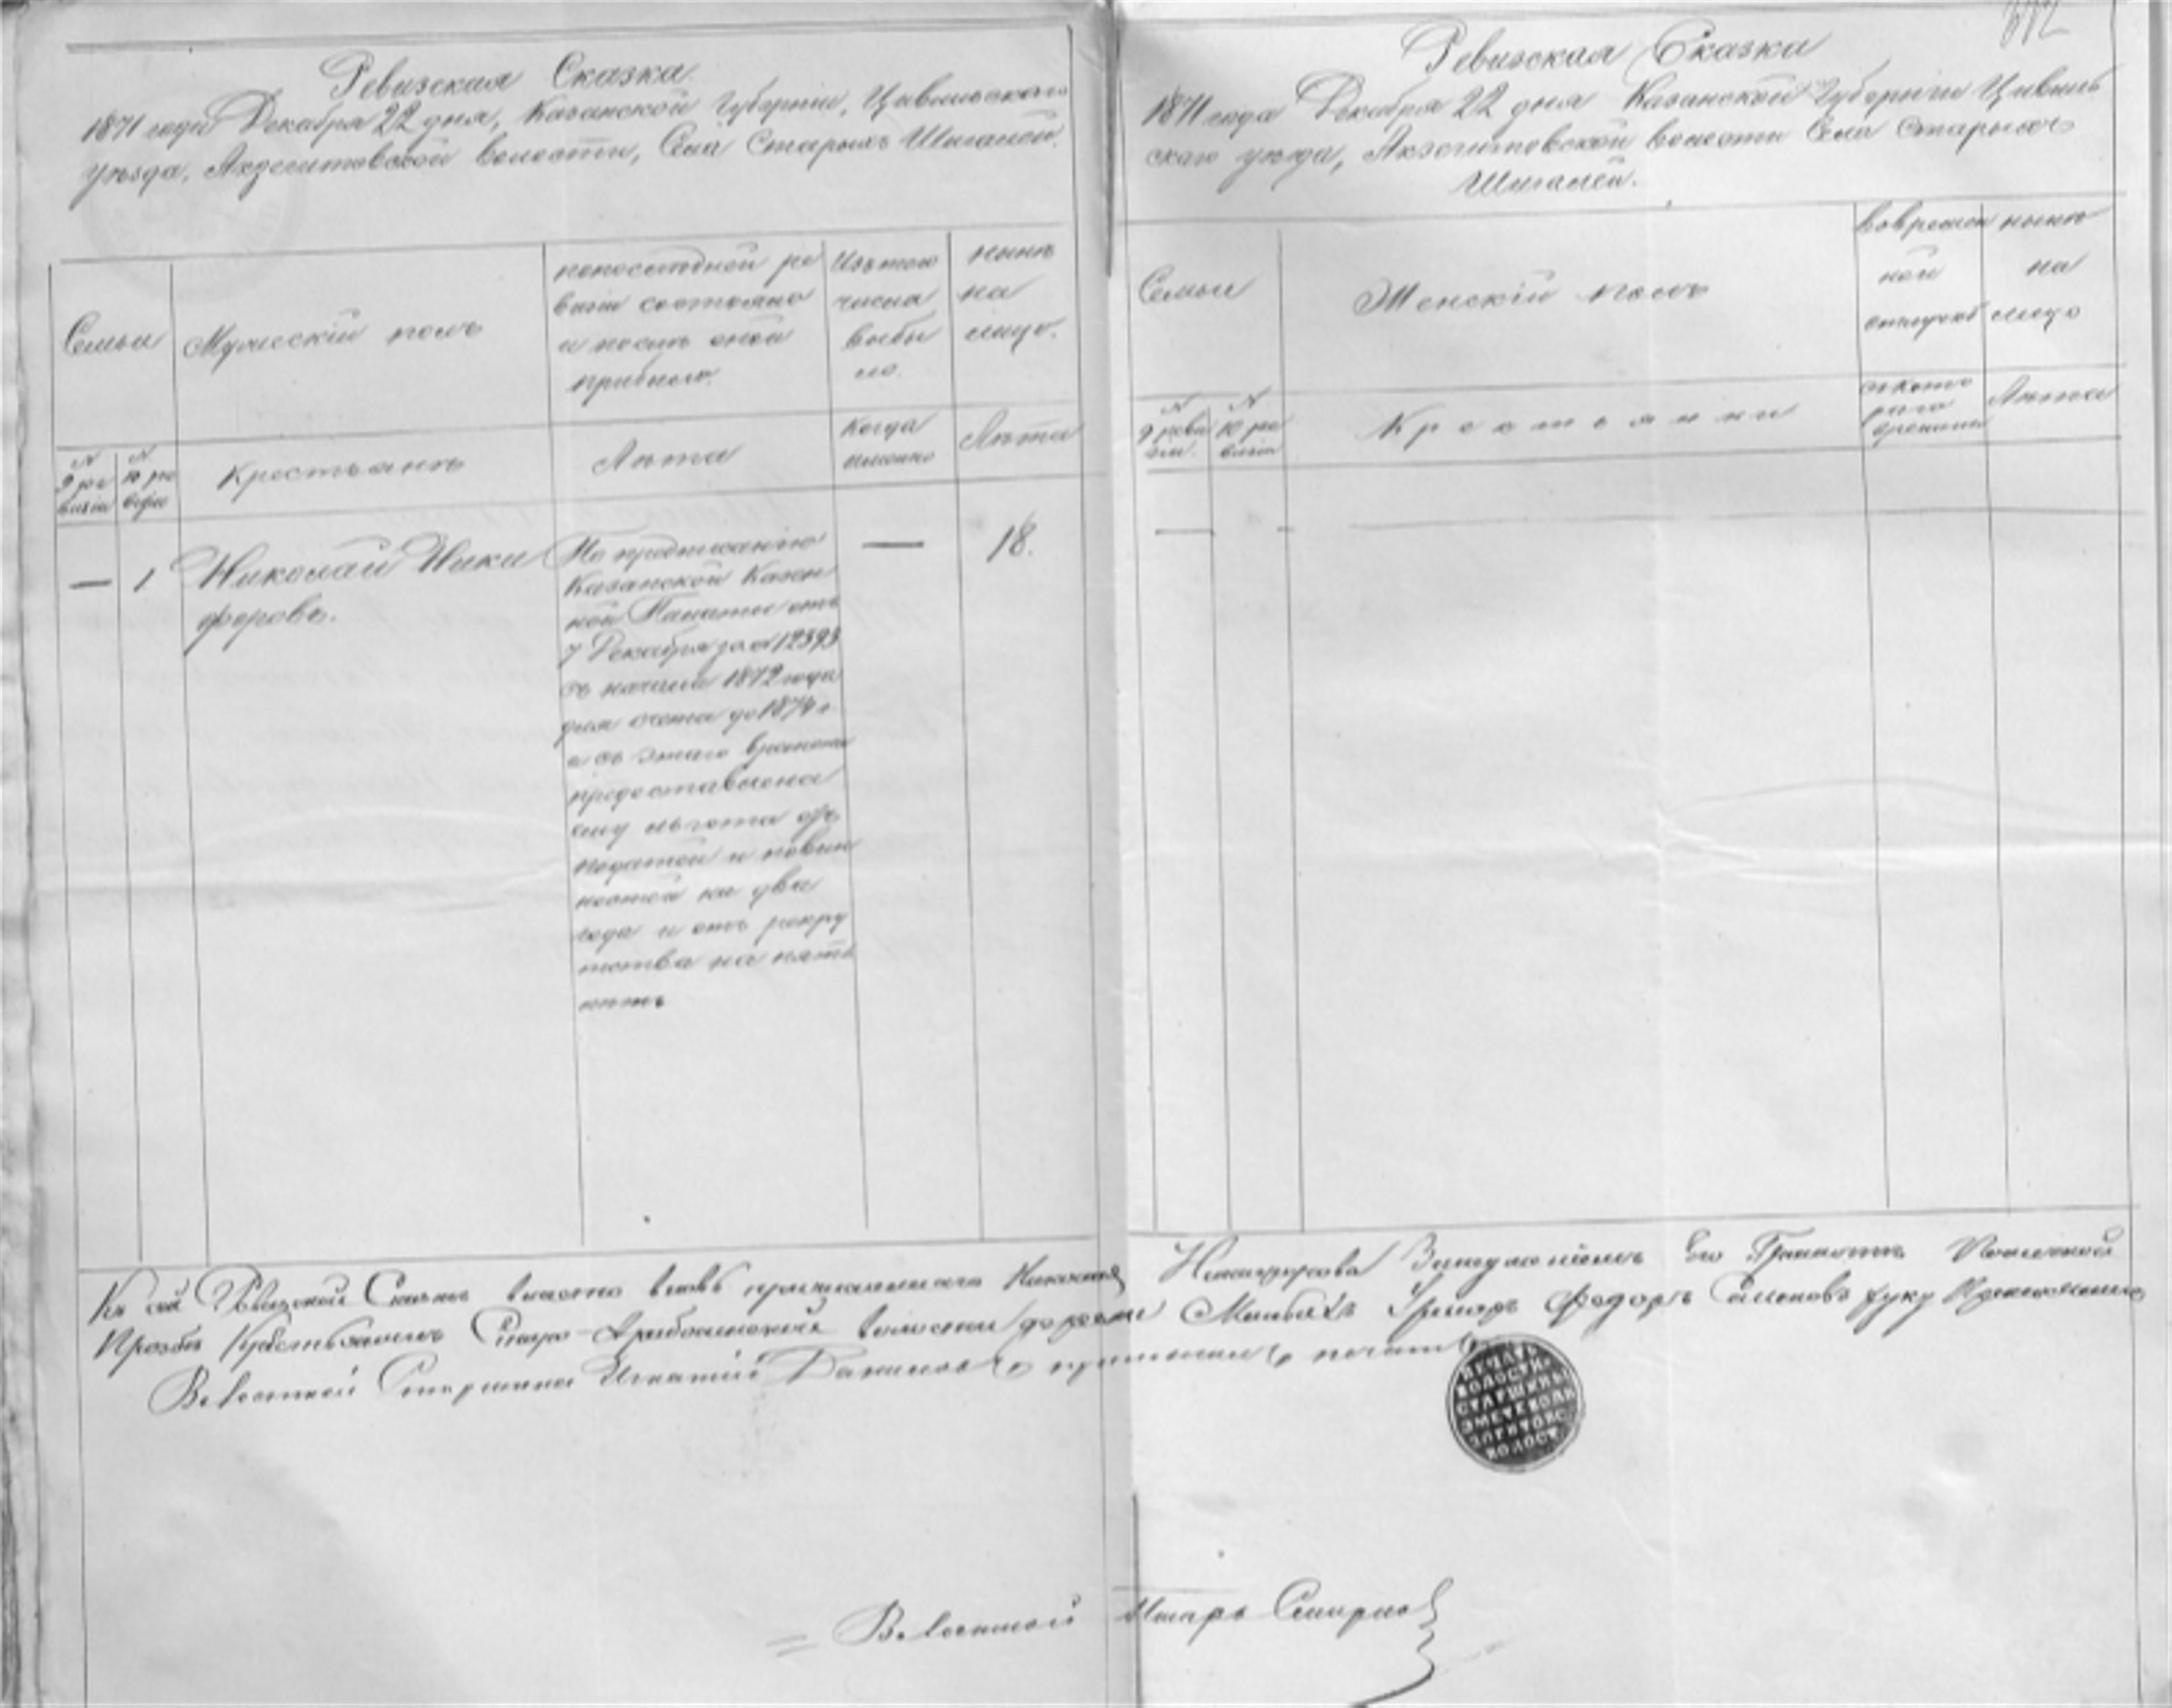 Ревизская Сказка
1871 года Декабря 22 дня, Казанской Губернiи, Цивильскаго
уѣзда, Акзегитовской волости, Села Старыхъ Шигалей.
Семьи
Мужескiй полъ
по последней ре
визiи состояло
и послѣ оной
прибыло.
Изъ того
числа
выбы
ло.
нынѣ
на
лицо.
№
9 ре
визiи
№
10 ре
визiи
Крестьянъ
Лѣта
Когда
именно
Лѣта
—
1
Николай Ники
форовъ.
По предписанiю
Казанской Казен
ной Палаты отъ
7 Декабря за № 12393
съ начала 1872 года
для счета до 1874 г.
а съ этаго времени
предоставлена
ему льгота отъ
податей и повин
ностей на два
года и отъ рекру
тства на пять
лѣтъ
—
18.
Ревизская Сказка
1871 года Декабря 22 дня Казанской Губернiи Цивиль
скаго уѣзда, Акзегитовской волости Села Старыхъ
Шигалей.
Семьи
Женскiй полъ
Во времен
ной
отлучкѣ
нынѣ
на
лицо
№
9 реви
зiи.
№
10 ре
визiи
Крестьянки
съ кото
раго
времени
Лѣта
—
-
Къ сей Ревизской Сказкѣ вмѣсто вновь причисленнаго Николая Никифорова
Прозьбѣ Крестьянинъ Старо- волости Федоръ Семеновъ руку Приложилъ
Волостной Старшина Игнатiй Даниловъ приложил печать
ПЕЧАТЬ
ВОЛОСТН.
СТАРШИНЫ
ВОЛОСТ
Волостной Писарь Смирнов